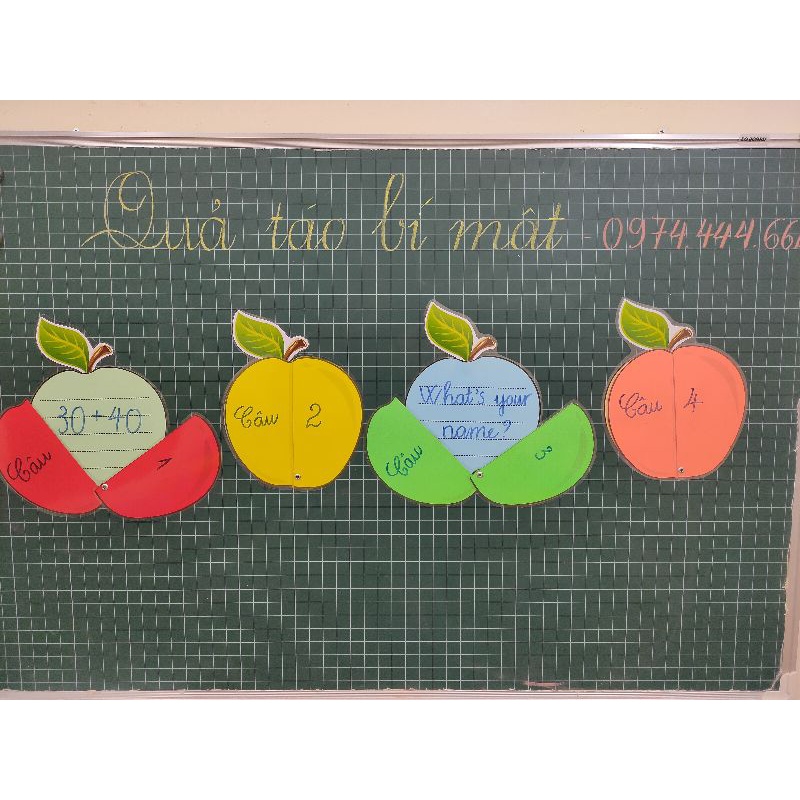 Quả táo bí mật - 0974.444.66
30 + 40
Câu 1
Câu 2
What's your
name?
Câu 3
Câu 4